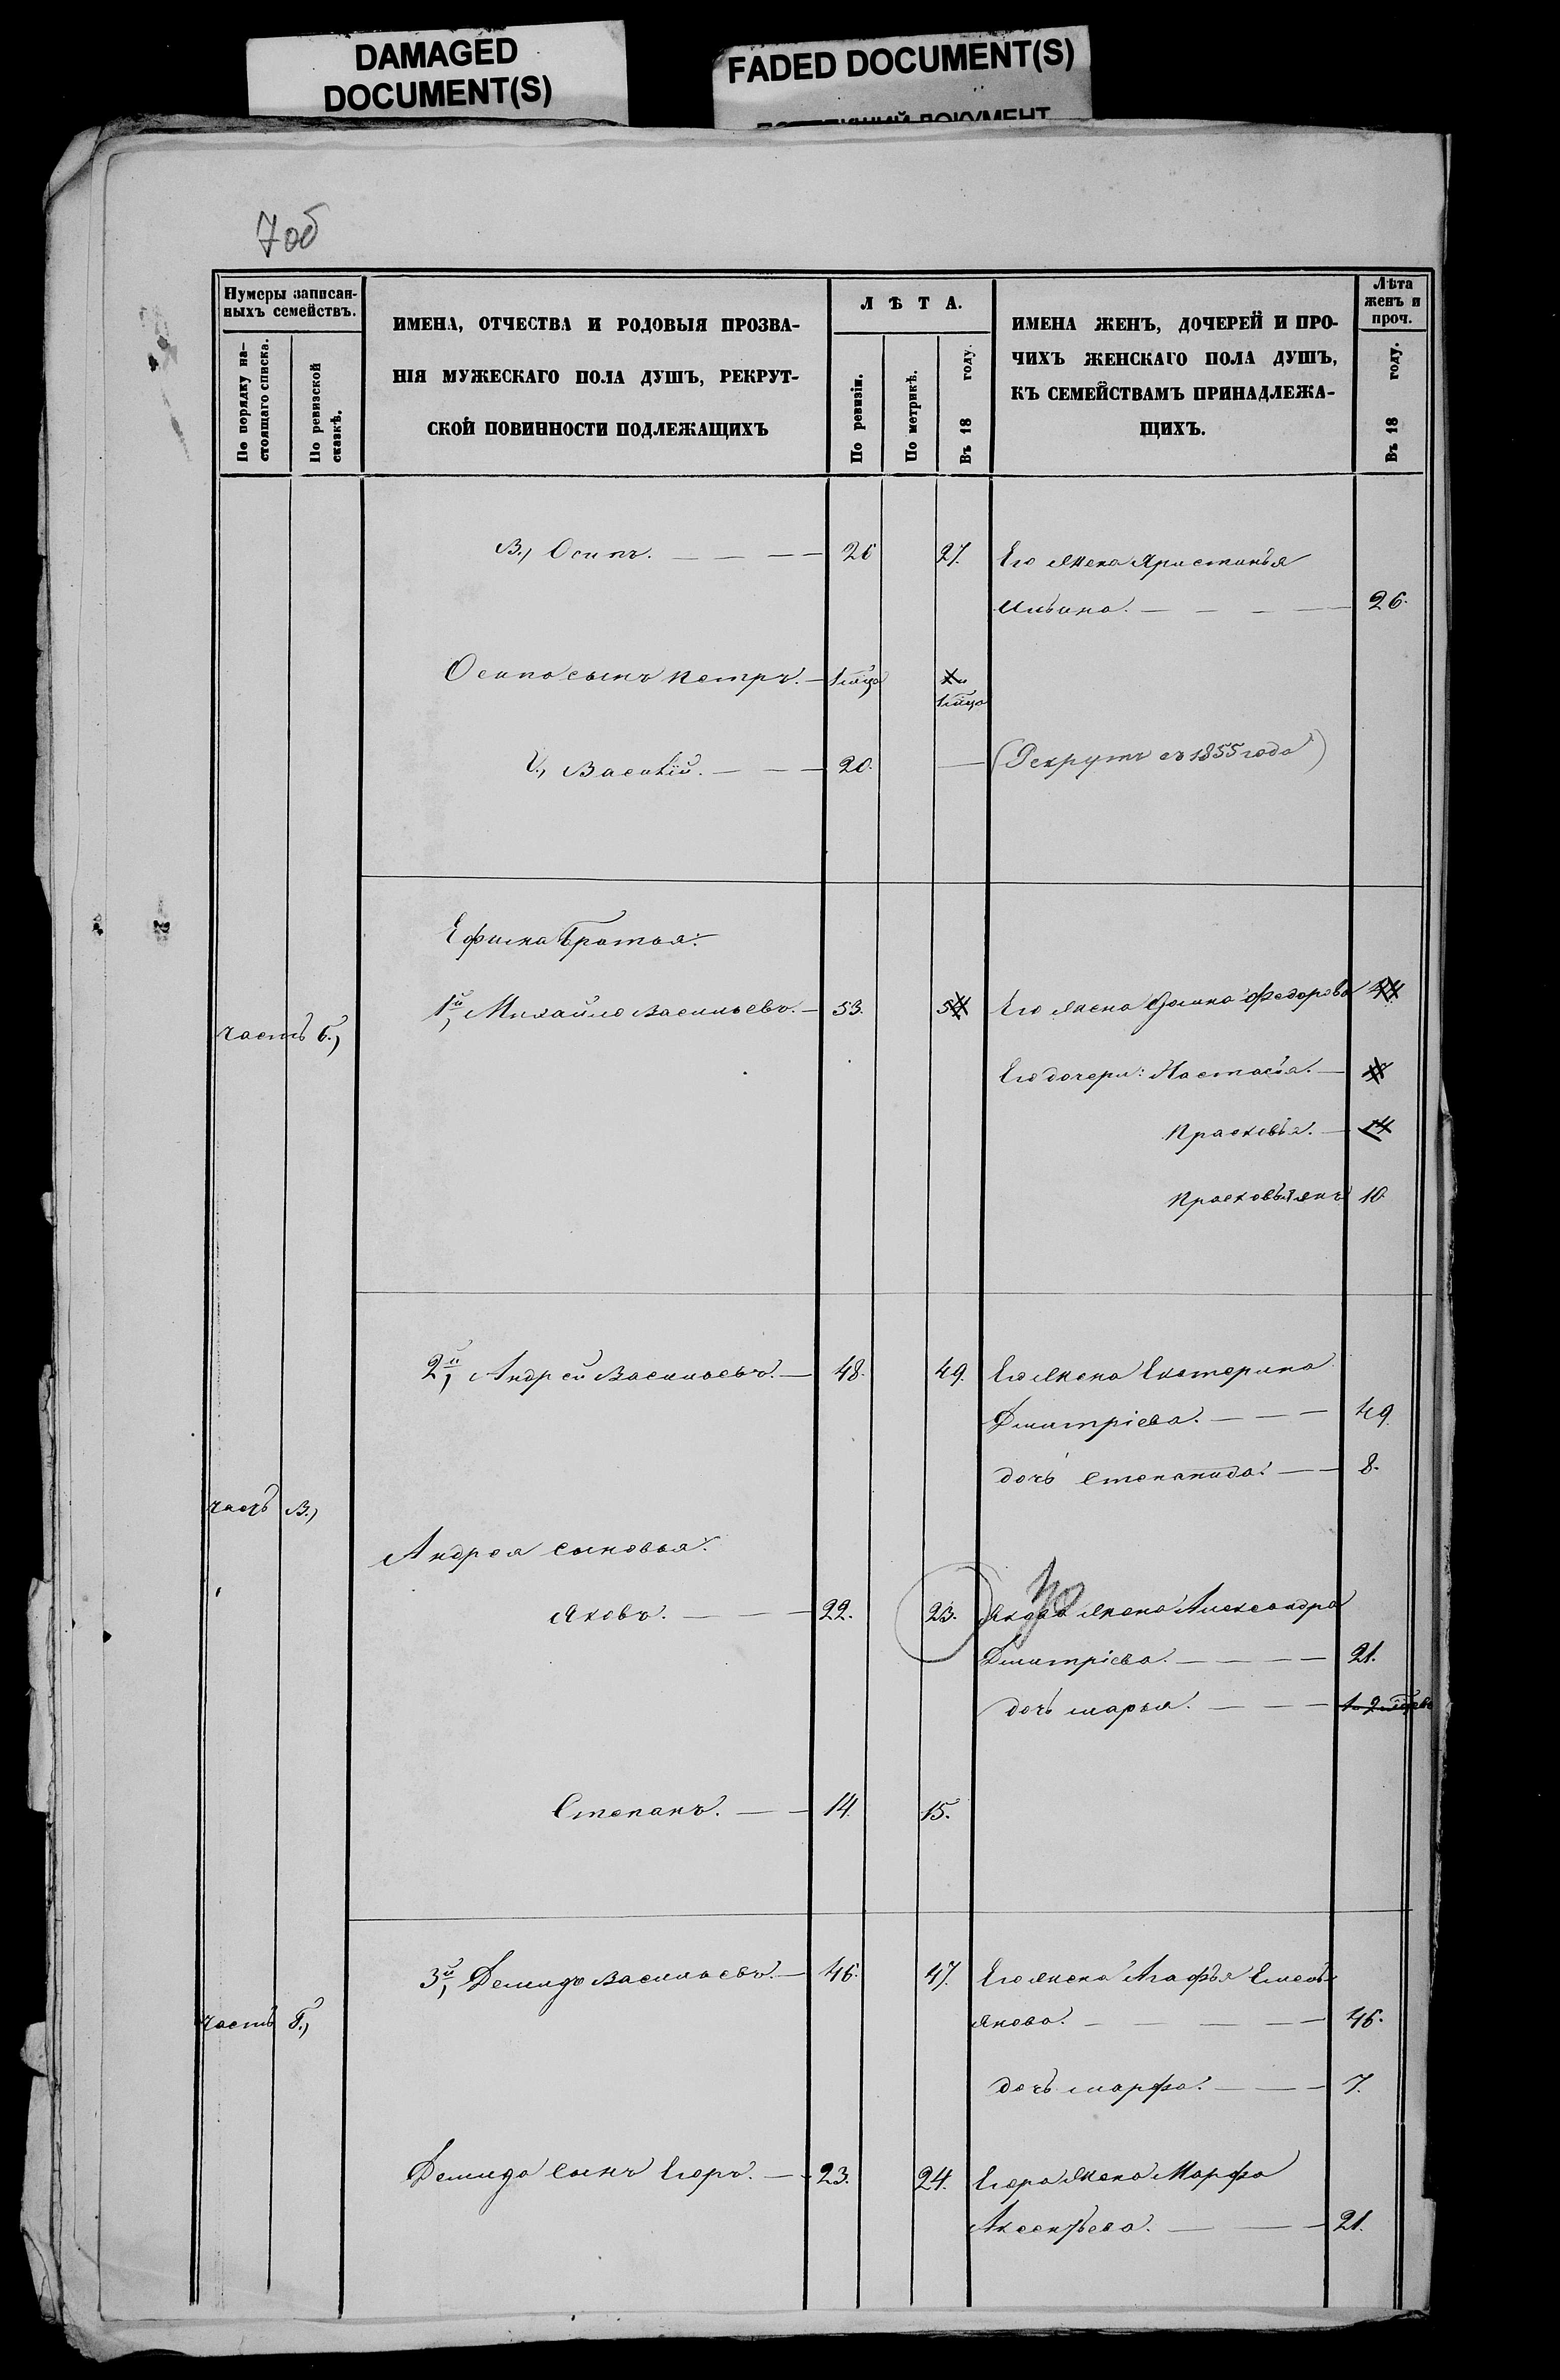 DAMAGED
DOCUMENT(S)
FADED DOCUMENT(S)
7об
Нумеры записан-
ныхъ семействъ.
По порядку на-
стоящаго списка.
По ревизской
сказкѣ.
ИМЕНА, ОТЧЕСТВА И РОДОВЫЯ ПРОЗВА-
НІЯ МУЖЕСКАГО ПОЛА ДУШЪ, РЕКРУТ-
СКОЙ ПОВИННОСТИ ПОДЛЕЖАЩИХЪ
ЛѢТА.
По ревизіи.
По метрикѣ.
Въ 18 году.
ИМЕНА ЖЕНЪ, ДОЧЕРЕЙ И ПРО-
ЧИХЪ ЖЕНСКАГО ПОЛА ДУШЪ,
КЪ СЕМЕЙСТВАМЪ ПРИНАДЛЕЖА-
ЩИХЪ.
Лѣта
женъ и
проч.
Въ 18 году.
В., Осипъ. — 26 27. Его жена
Ильина. — 26.
Осипа сынъ Петръ. —
Василій. — 20. — (Рекрутъ съ 1855 года)
Ефима братья:
1й, Михайло Васильевъ. — 53. 54 Его жена Федорова 44
часть б.,
Его дочери: Настасья. —
Прасковья. — 14
Прасковья 10
2й, Андрей Васильевъ. — 48. 49. Его жена Екатерина
Дмитріева. — 49.
дочь Степанида. — 8.
часть в.,
Андрея сыновья:
Яковъ. — 22. 23. Якова жена Александра
Дмитріева. — 21.
дочь Марья. —
Степанъ. — 14. 15.
3й, Демидъ Васильевъ. — 46. 47. Его жена Агафья Емель-
янова. — 46.
часть г.,
дочь Марфа. — 7.
Демида сынъ Егоръ. — 23. 24. Егора жена Марфа
Аксентьева. — 21.